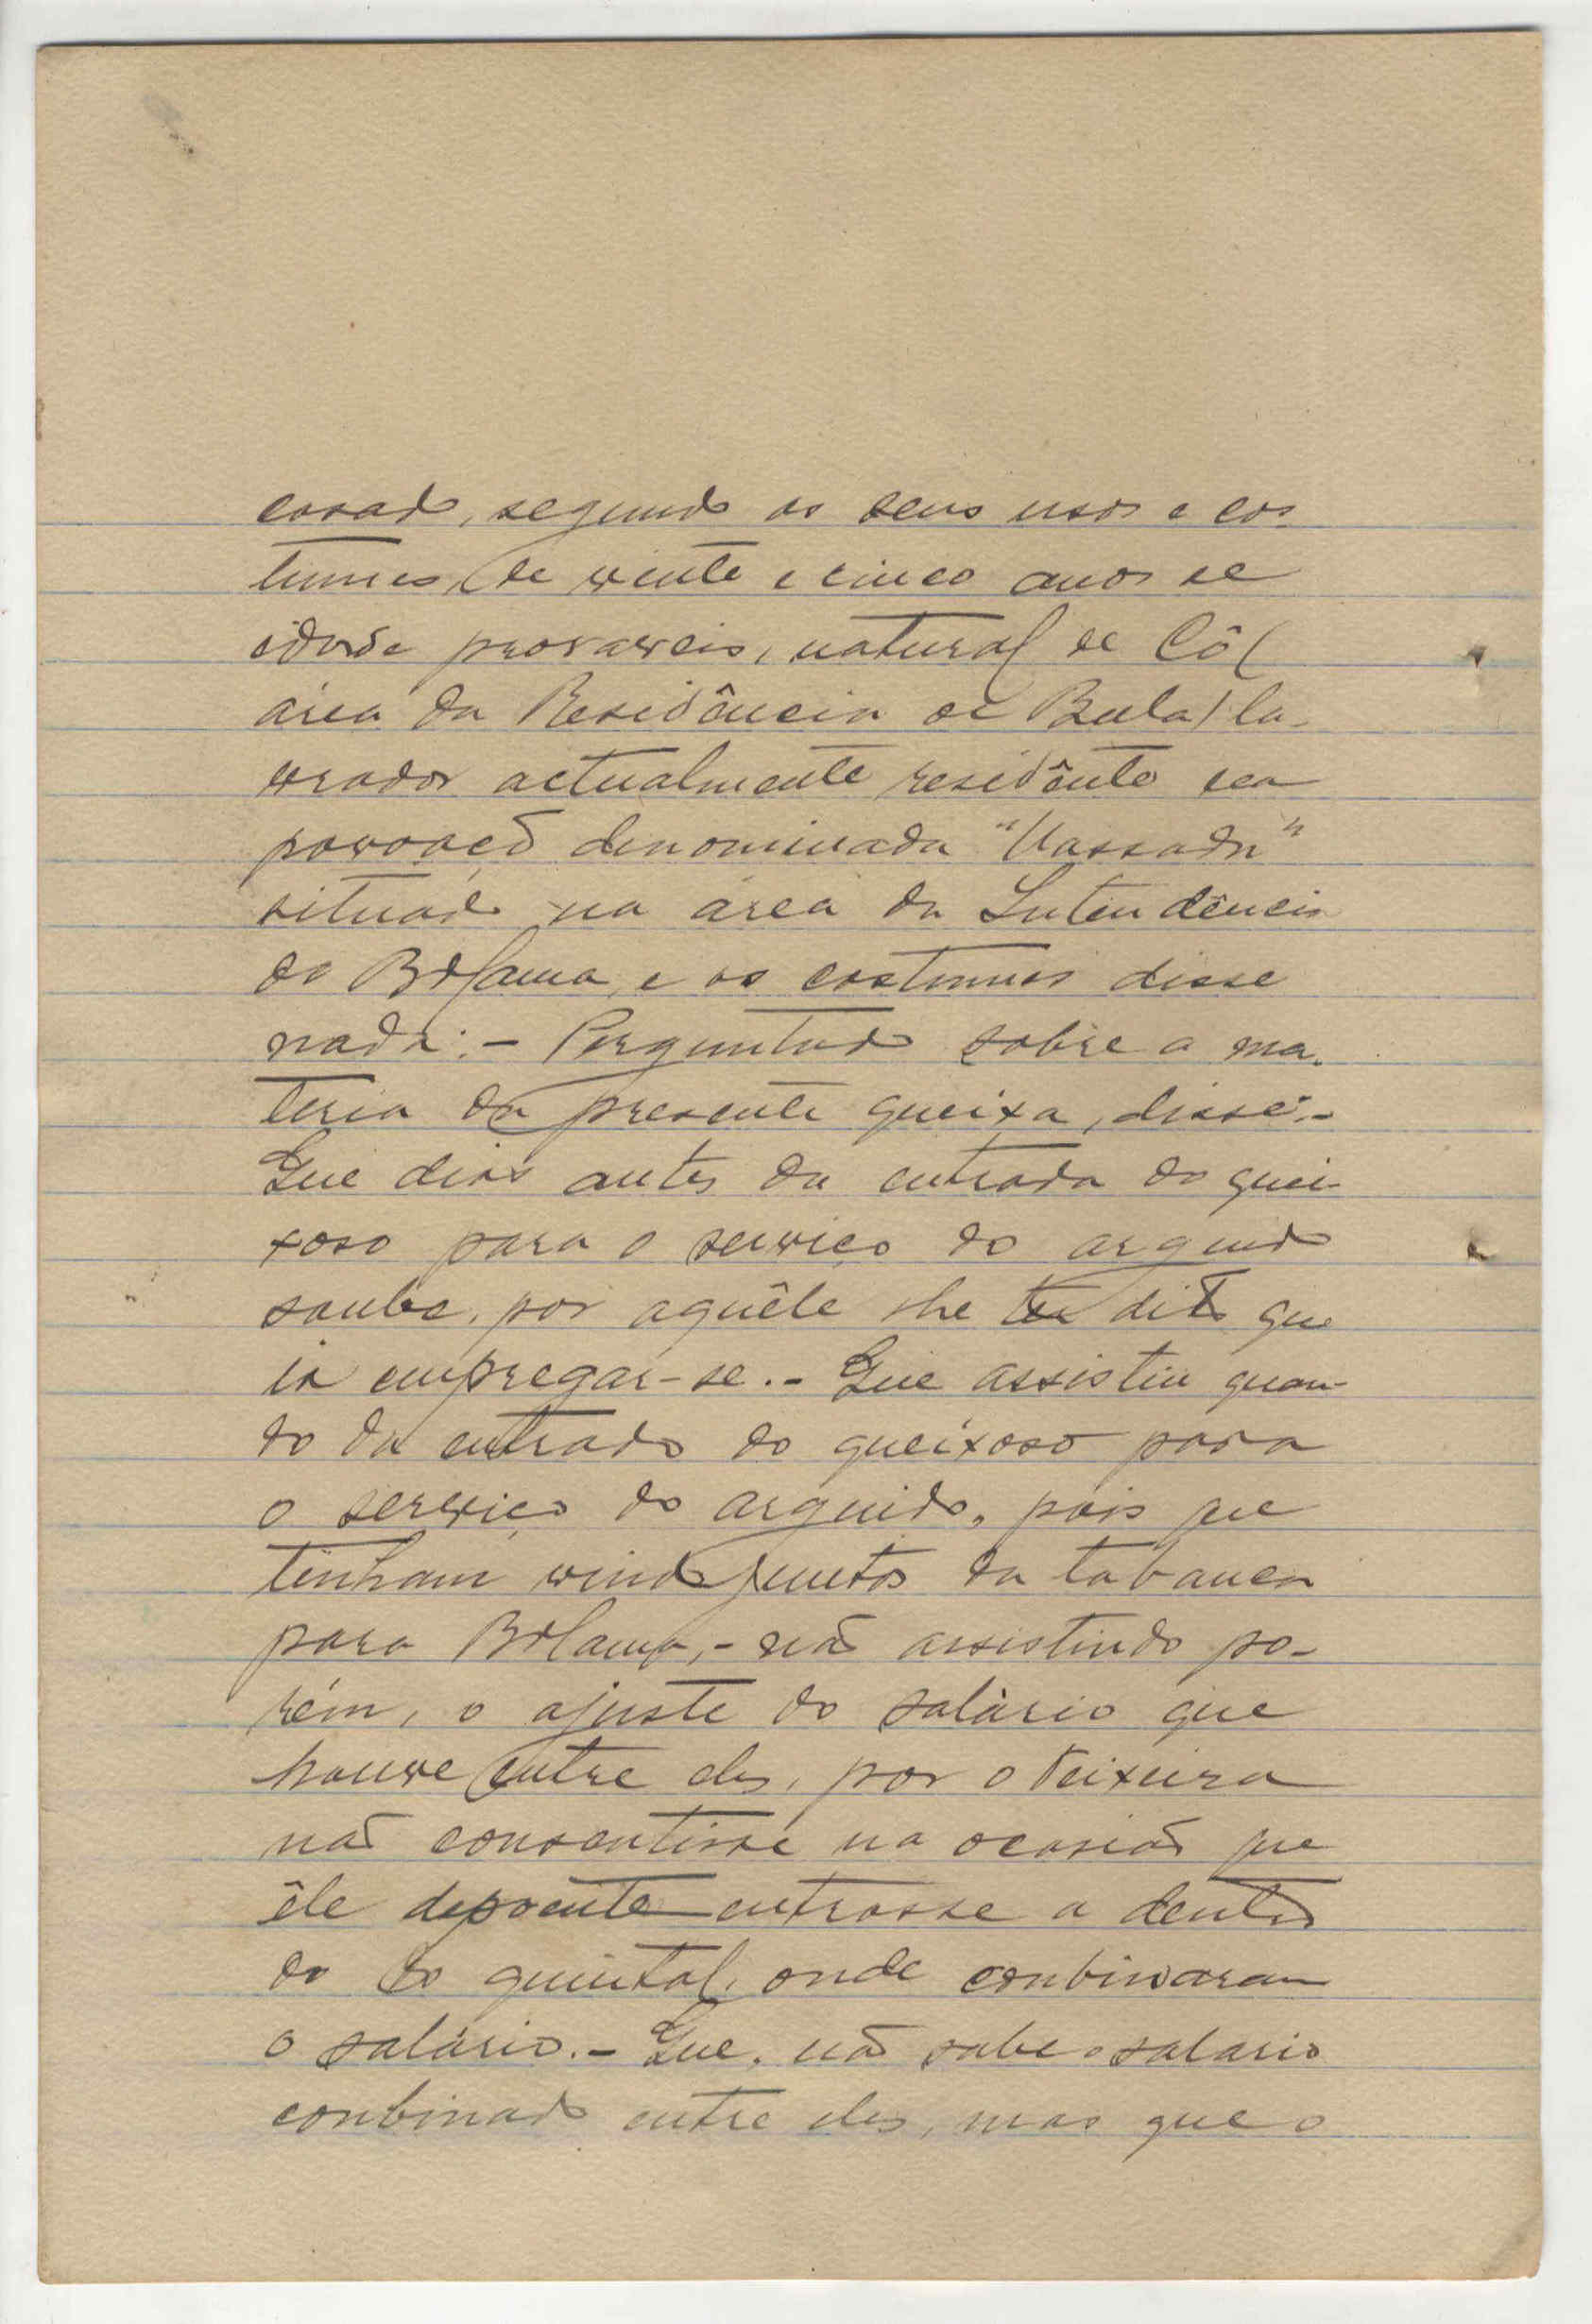 casado, segundo os seus usos e cos
tumes, de vinte e cinco anos de
idade provaveis, natural de Cô (
área da Residência de Bula) la-
vrador actualmente residênte na
povoação denominada "Vassada"
situado na área da Intendência
de Bolama, e os costumes disse
nada:- Perguntado sobre a ma-
teria da presente queixa, disse:-
Que dias antes da entrada do quei-
xoso para o serviço do arguido
soube, por aquêle lhe ter dito que
ia empregar-se.- Que assistiu quan-
do da entrado do queixoso para
o serviço do arguido, pois que
tinham vindo juntos da tabanca
para Bolama,- não assistindo po-
rém, o ajuste do salário que
houve entre eles, por o Teixeira
não consentisse na ocasião que
êle depoente entrasse a dentro
do do quintal, onde combinaram
o salário.- Que, não sabe o salario
combinado entre eles, mas que o